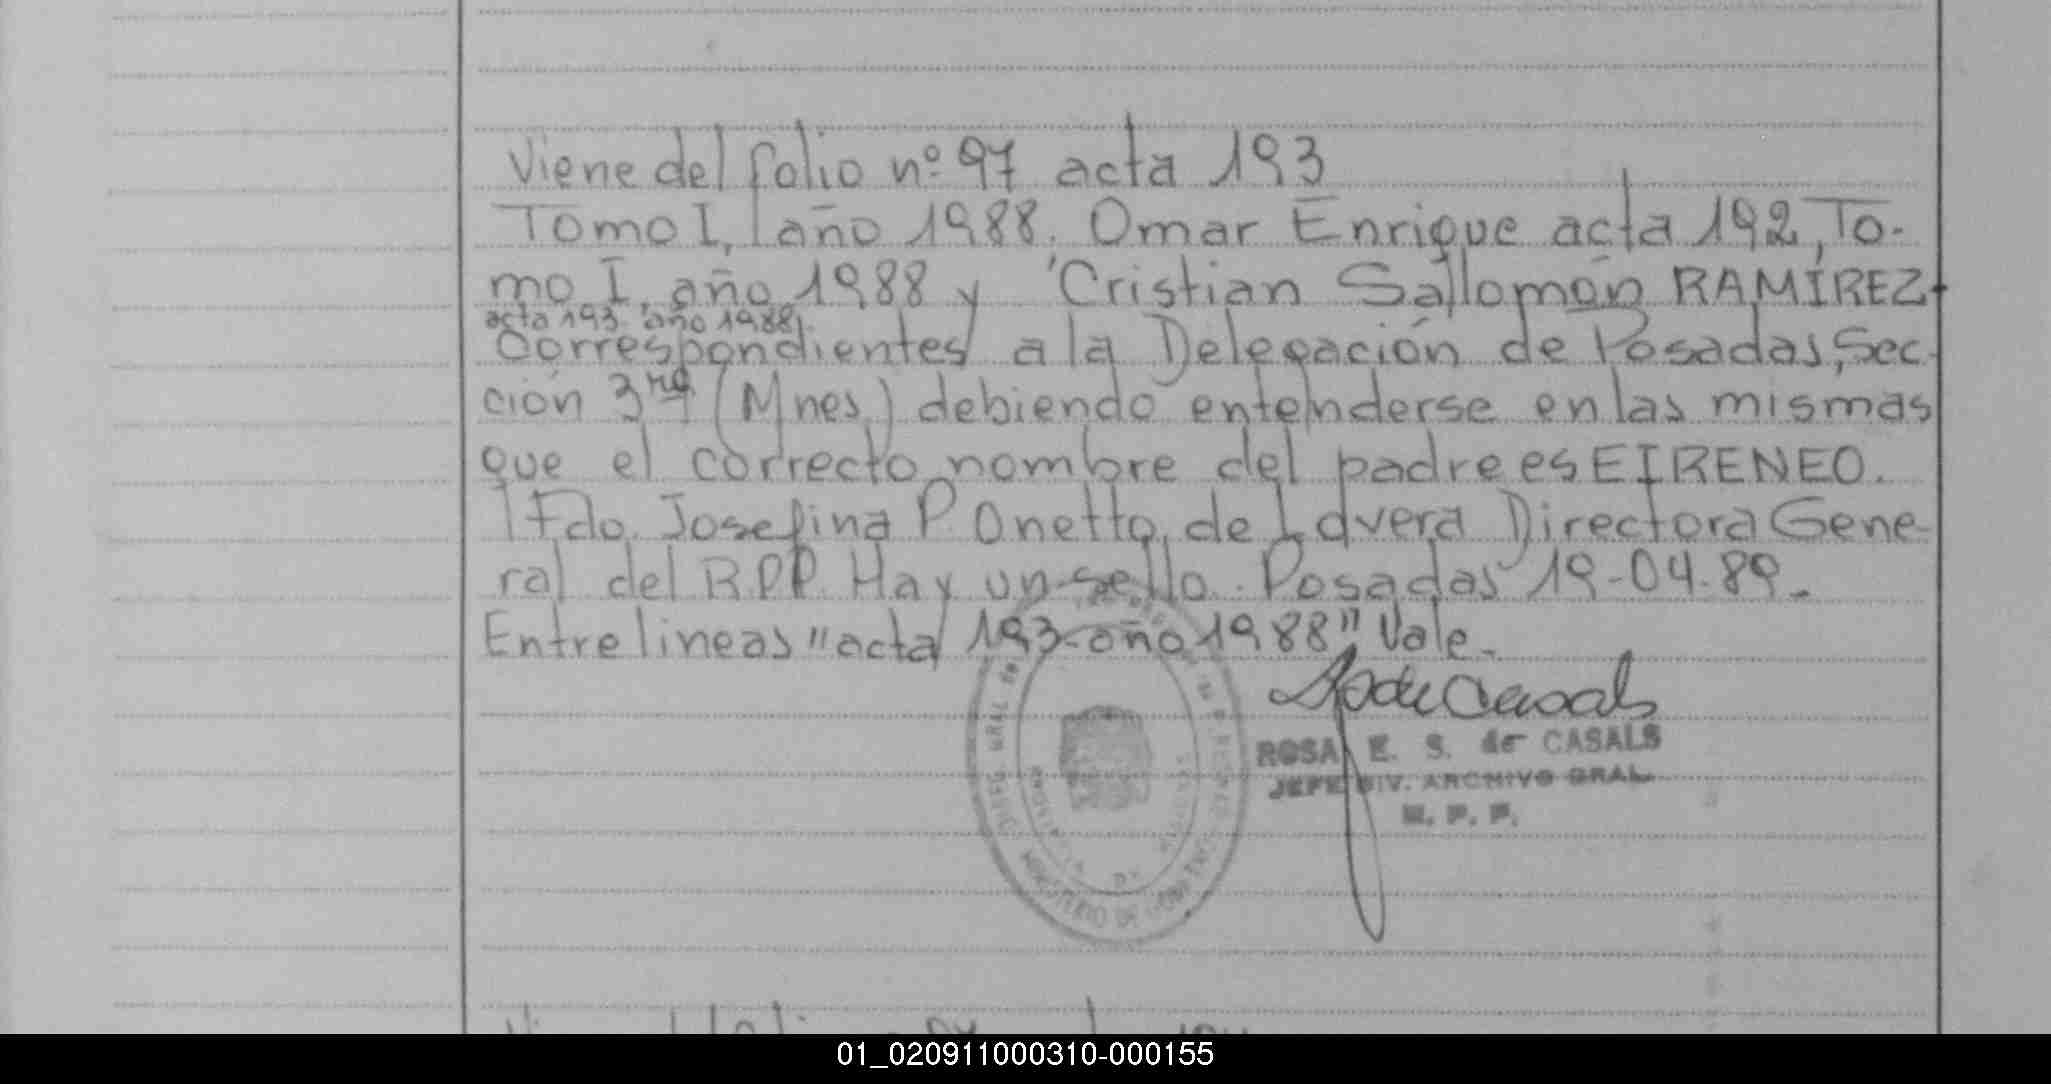 Viene del folio nº 97 acta 193
Tomo I, año 1988. Omar Enrique acta 192, To-
mo I, año 1988 y Cristian Sallomón RAMÍREZ
acta 193 año 1988
Correspondientes a la Delegación de Posadas, Sec-
ción 3ra (Mnes) debiendo entenderse en las mismas
que el correcto nombre del padre es EIRENEO.
Fdo. Josefina P. Onetto de Lovera Directora Gene-
ral del R.P.P. Hay un sello. Posadas 19-04-89.-
Entre lineas "acta 193-año 1988" Vale.-
ROSA E. S. de CASALS
JEFE DIV. ARCHIVO GRAL.
R. P. P.
MINISTERIO DE
01_020911000310-000155